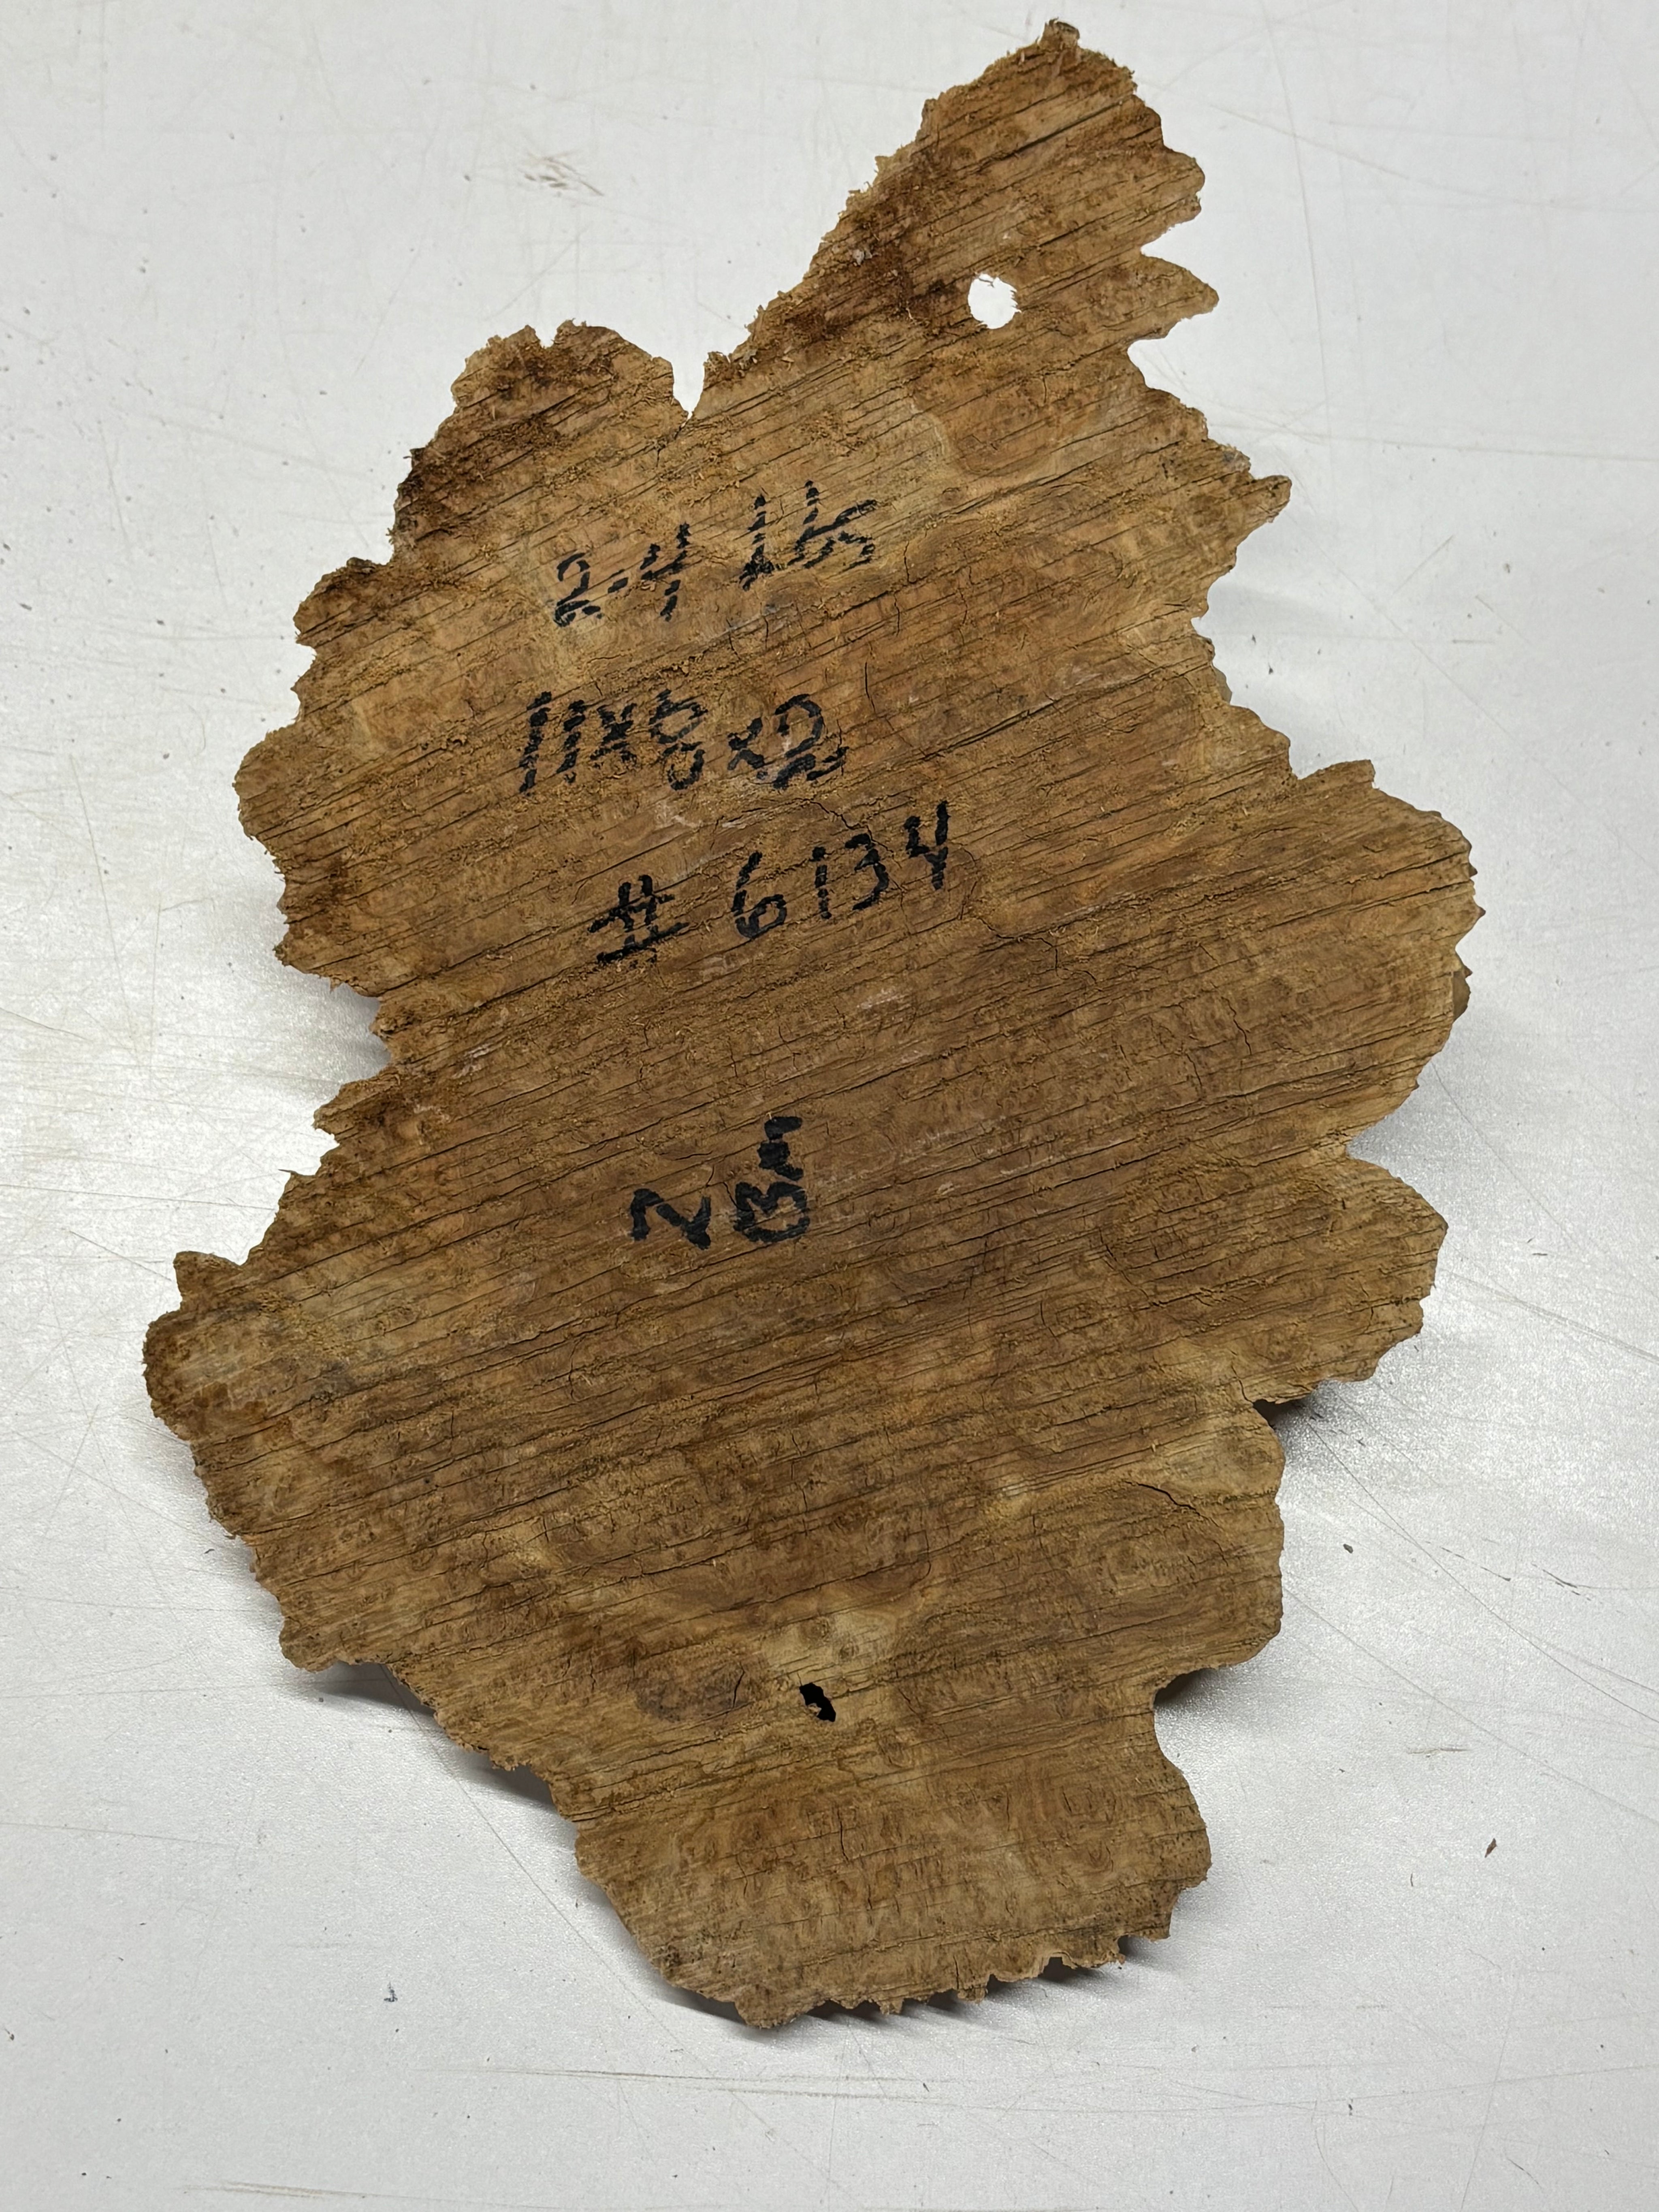 2.4 lbs
11x8x2
# 6134